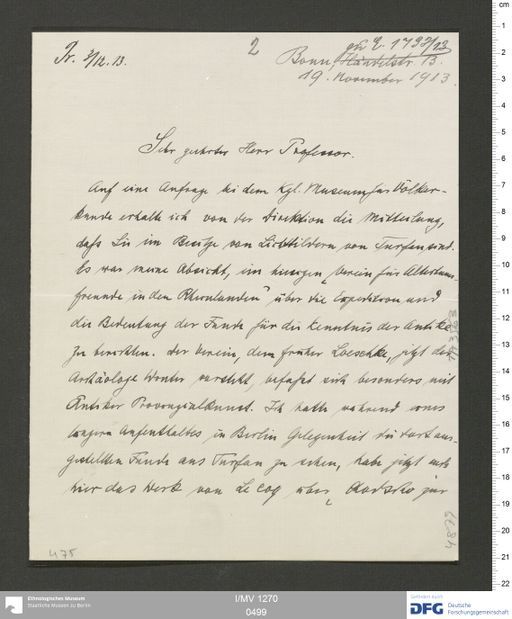 Pr. 3/12.13.
2
zu E. 1793/13
Bonn, Händelstr. 13.
19. November 1913.
Sehr geehrter Herr Professor.
Auf eine Anfrage bei dem Kgl. Museum für Völker-
kunde erhalte ich von der Direktion die Mitteilung,
daß Sie im Besitze von Lichtbildern von Turfan sind.
Es war meine Absicht, im hiesigen „Verein für Altertums-
freunde in den Rheinlanden" über die Expedition und
die Bedeutung der Funde für die Kenntnis der Antike
zu berichten. Der Verein, dem früher Loeschke, jetzt der
Archäologe Winter vorsteht, befaßt sich besonders mit
Antiker Provinzialkunst. Ich hatte während eines
längern Aufenthaltes in Berlin Gelegenheit die dort aus-
gestellten Funde aus Turfan zu sehen, habe jetzt auch
hier das Werk von Le Coq über „Chotscho zur
475
Ethnologisches Museum
Staatliche Museen zu Berlin
I/MV 1270
0499
Gefördert durch
DFG Deutsche
Forschungsgemeinschaft
cm
1
2
3
4
5
6
7
8
9
10
11
12
13
14
15
16
17
18
19
20
21
22